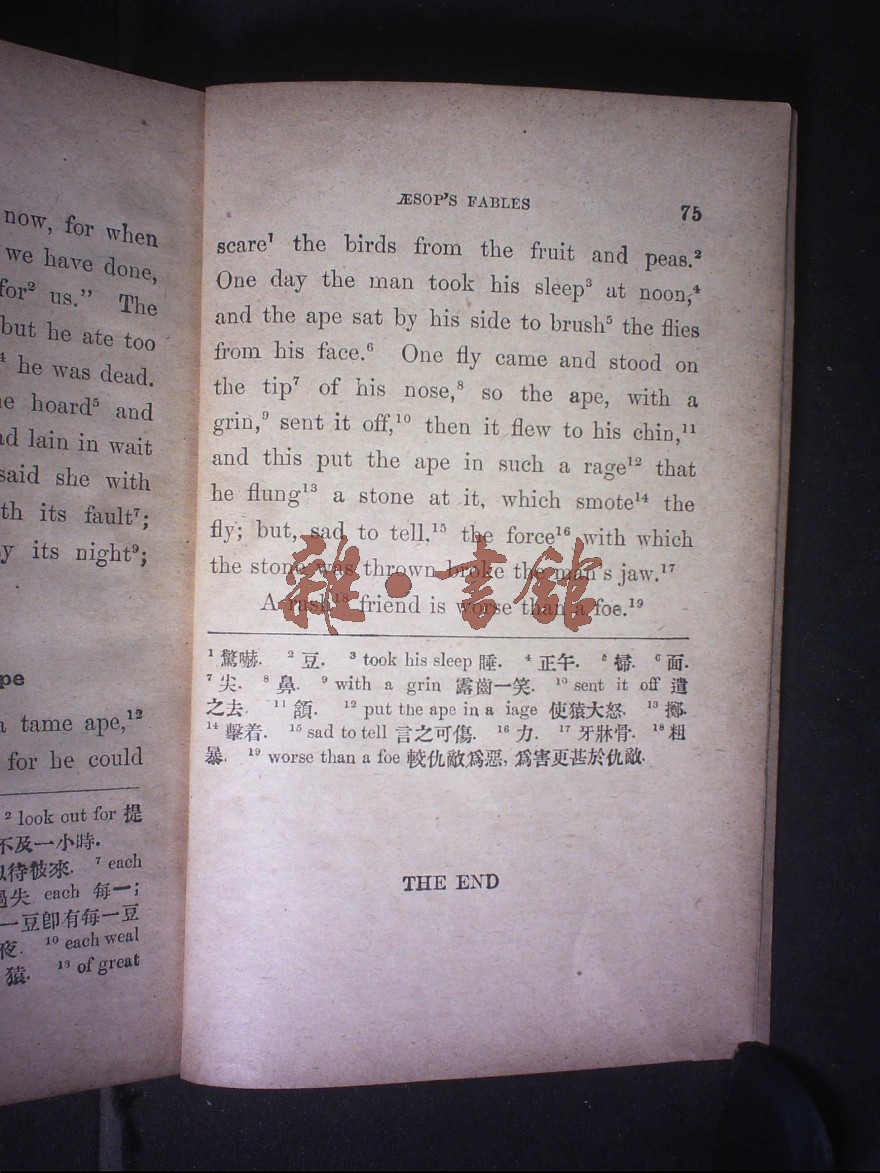 now, for when
we have done,
for² us.” The
but he ate too
⁴ he was dead.
hoard⁵ and
lain in wait
said she with
its fault⁷;
its night⁹;
tame ape,¹²
for he could
² look out for 提
不及一小時.
待彼來. ⁷ each
過失 each 每一;
一豆卽有每一豆
夜. ¹⁰ each weal
猿. ¹³ of great
ÆSOP’S FABLES
75
scare¹ the birds from the fruit and peas.²
One day the man took his sleep³ at noon,⁴
and the ape sat by his side to brush⁵ the flies
from his face.⁶ One fly came and stood on
the tip⁷ of his nose,⁸ so the ape, with a
grin,⁹ sent it off,¹⁰ then it flew to his chin,¹¹
and this put the ape in such a rage¹² that
he flung¹³ a stone at it, which smote¹⁴ the
fly; but, sad to tell,¹⁵ the force¹⁶ with which
the stone was thrown broke the man’s jaw.¹⁷
A rash¹⁸ friend is worse than a foe.¹⁹
¹ 驚嚇. ² 豆. ³ took his sleep 睡. ⁴ 正午. ⁵ 掃. ⁶ 面.
⁷ 尖. ⁸ 鼻. ⁹ with a grin 露齒一笑. ¹⁰ sent it off 遣
之去. ¹¹ 頷. ¹² put the ape in a iage 使猿大怒. ¹³ 擲.
¹⁴ 擊着. ¹⁵ sad to tell 言之可傷. ¹⁶ 力. ¹⁷ 牙牀骨. ¹⁸ 粗
暴. ¹⁹ worse than a foe 較仇敵爲惡, 爲害更甚於仇敵.
THE END
雜·書館